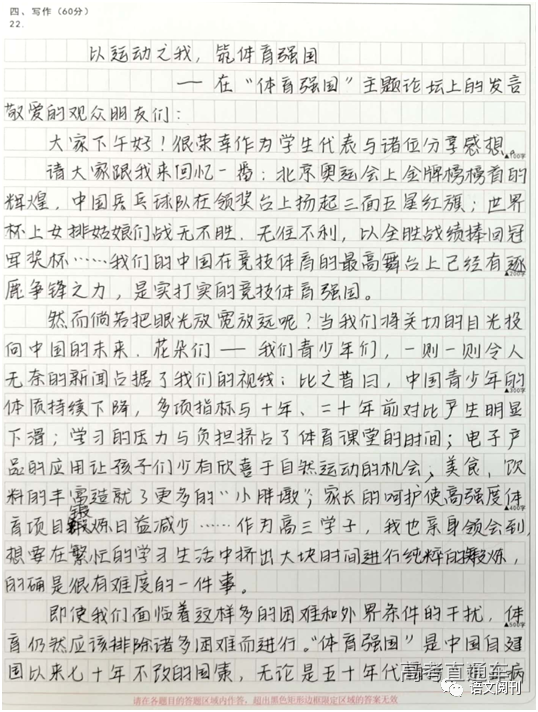 四、写作（60分）
22.
以运动之我，筑体育强国
——在“体育强国”主题论坛上的发言
敬爱的观众朋友们：
大家下午好！很荣幸作为学生代表与诸位分享感想。
▲100字
请大家跟我来回忆一番：北京奥运会上金牌榜榜首的
辉煌，中国乒乓球队在领奖台上扬起三面五星红旗；世界
杯上女排姑娘们战无不胜、无往不利，以全胜战绩捧回冠
军奖杯……我们的中国在竞技体育的最高舞台上已经有逐
▲200字
鹿争锋之力，是实打实的竞技体育强国。
然而倘若把眼光放宽放远呢？当我们将关切的目光投
向中国的未来、花朵们——我们青少年们，一则一则令人
无奈的新闻占据了我们的视线：比之昔日，中国青少年的
▲300字
体质持续下降，多项指标与十年、二十年前对比产生明显
下滑；学习的压力与负担挤占了体育课堂的时间；电子产
品的应用让孩子们少有欣喜于自然运动的机会；美食、饮
料的丰富造就了更多的“小胖墩”；家长的呵护使高强度体
▲400字
育项目锻炼日益减少……作为高三学子，我也亲身领会到，
想要在繁忙的学习生活中挤出大块时间进行纯粹的锻炼，
的确是很有难度的一件事。
即使我们面临着这样多的困难和外界条件的干扰，体
▲500字
育仍然应该排除诸多困难而进行。“体育强国”是中国自建
国以来七十年不改的国策，无论是五十年代
病
高考直通车
语文阅刊
请在各题目的答题区域内作答，超出黑色矩形边框限定区域的答案无效